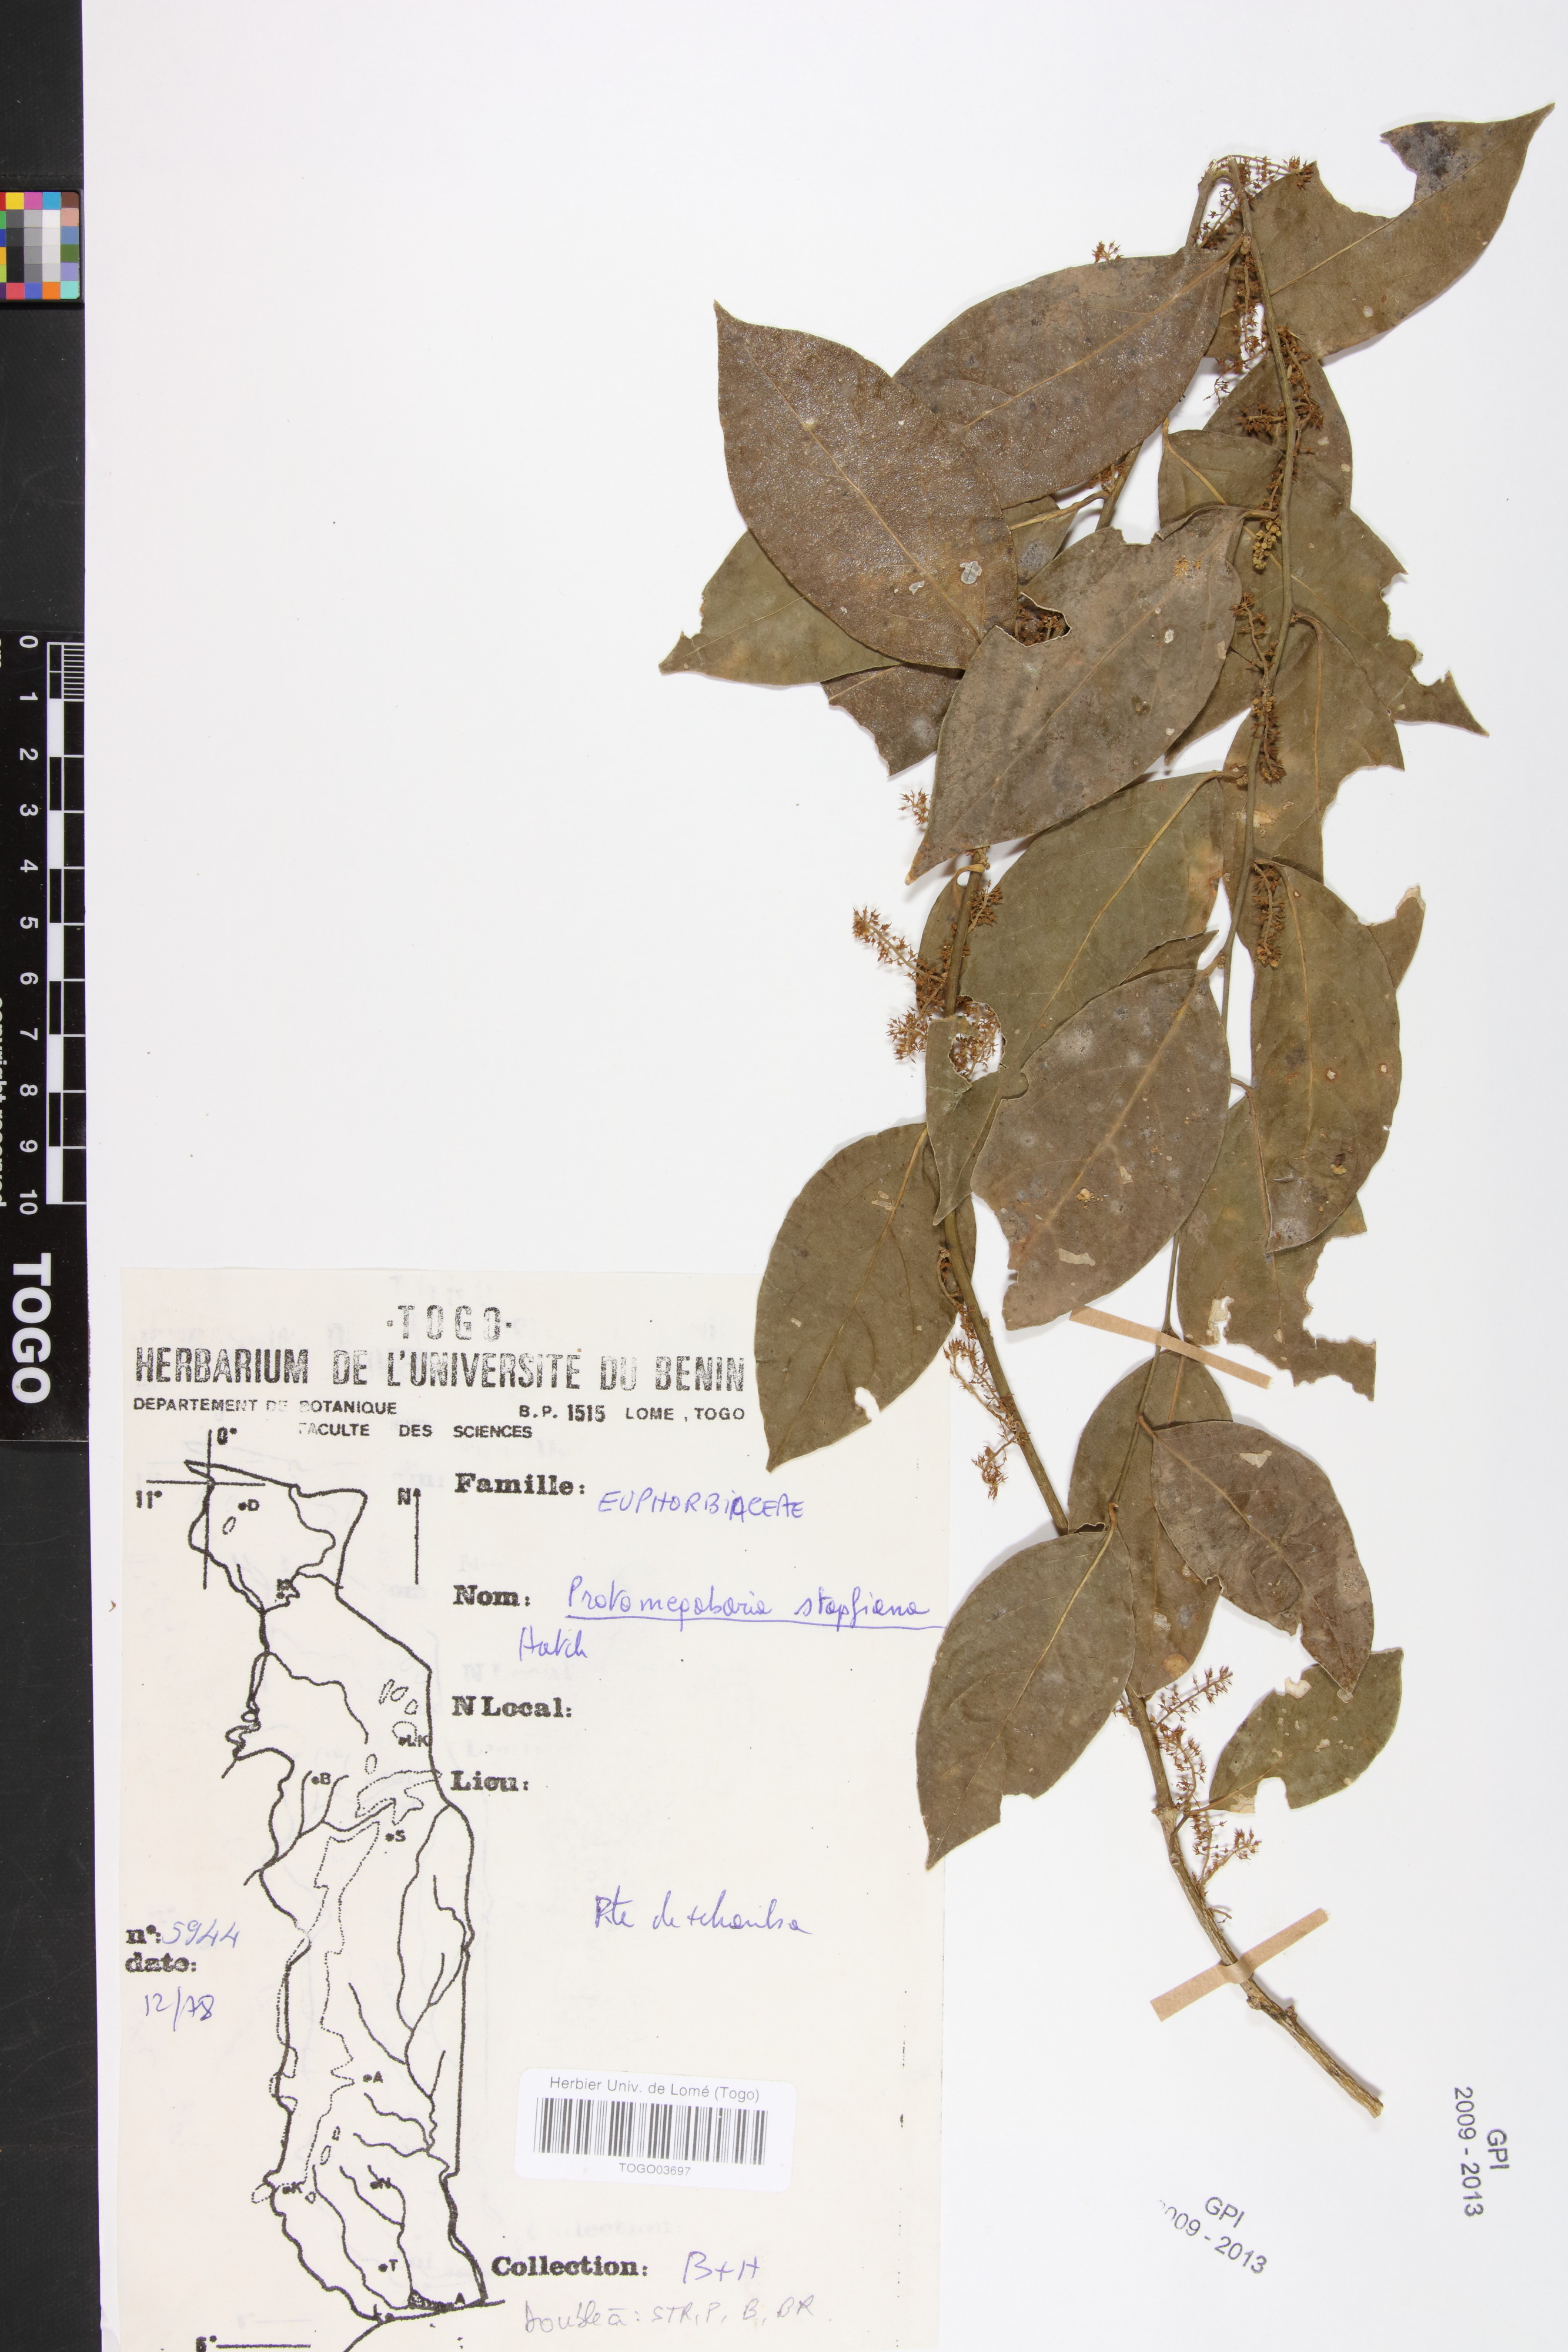 ·TOGO·
HERBARIUM DE L'UNIVERSITE DU BENIN
DEPARTEMENT DE BOTANIQUE B.P. 1515 LOME, TOGO
FACULTE DES SCIENCES
0°
11°
N
D
Famille: EUPHORBIACEAE
Nom: Protomegabaria stapfiana
Hutch
N Local:
LK
B
Lieu:
S
Rte de tchamba
n°: 5944
date:
12/78
A
Herbier Univ. de Lomé (Togo)
TOGO03697
K
N
T
Collection: B+H
A
Double à: STR, P, B, BR
6°
GPI
2009 - 2013
GPI
2009 - 2013
0 1 2 3 4 5 6 7 8 9 10
copyright reserved
TOGO